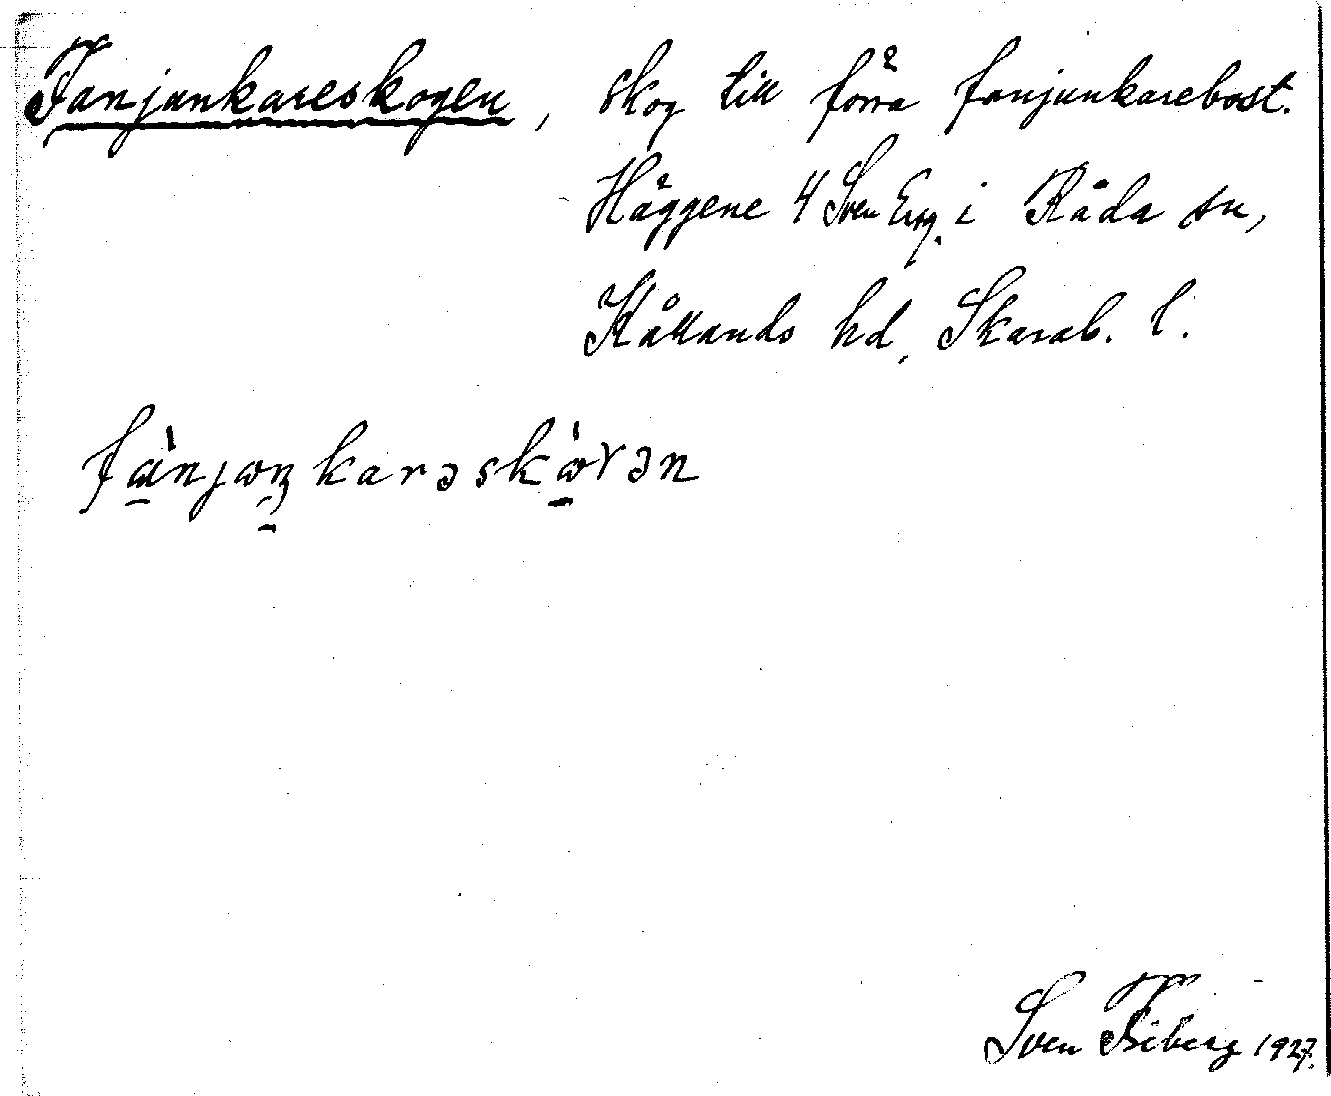 Fanjunkareskogen, skog till förra fanjunkarebost.
Häggene 4 Sven Ersg. i Råda sn,
Kållands hd, Skarab. l.
fànjωŋkarəskὼγən
Sven Fiberg 1927.